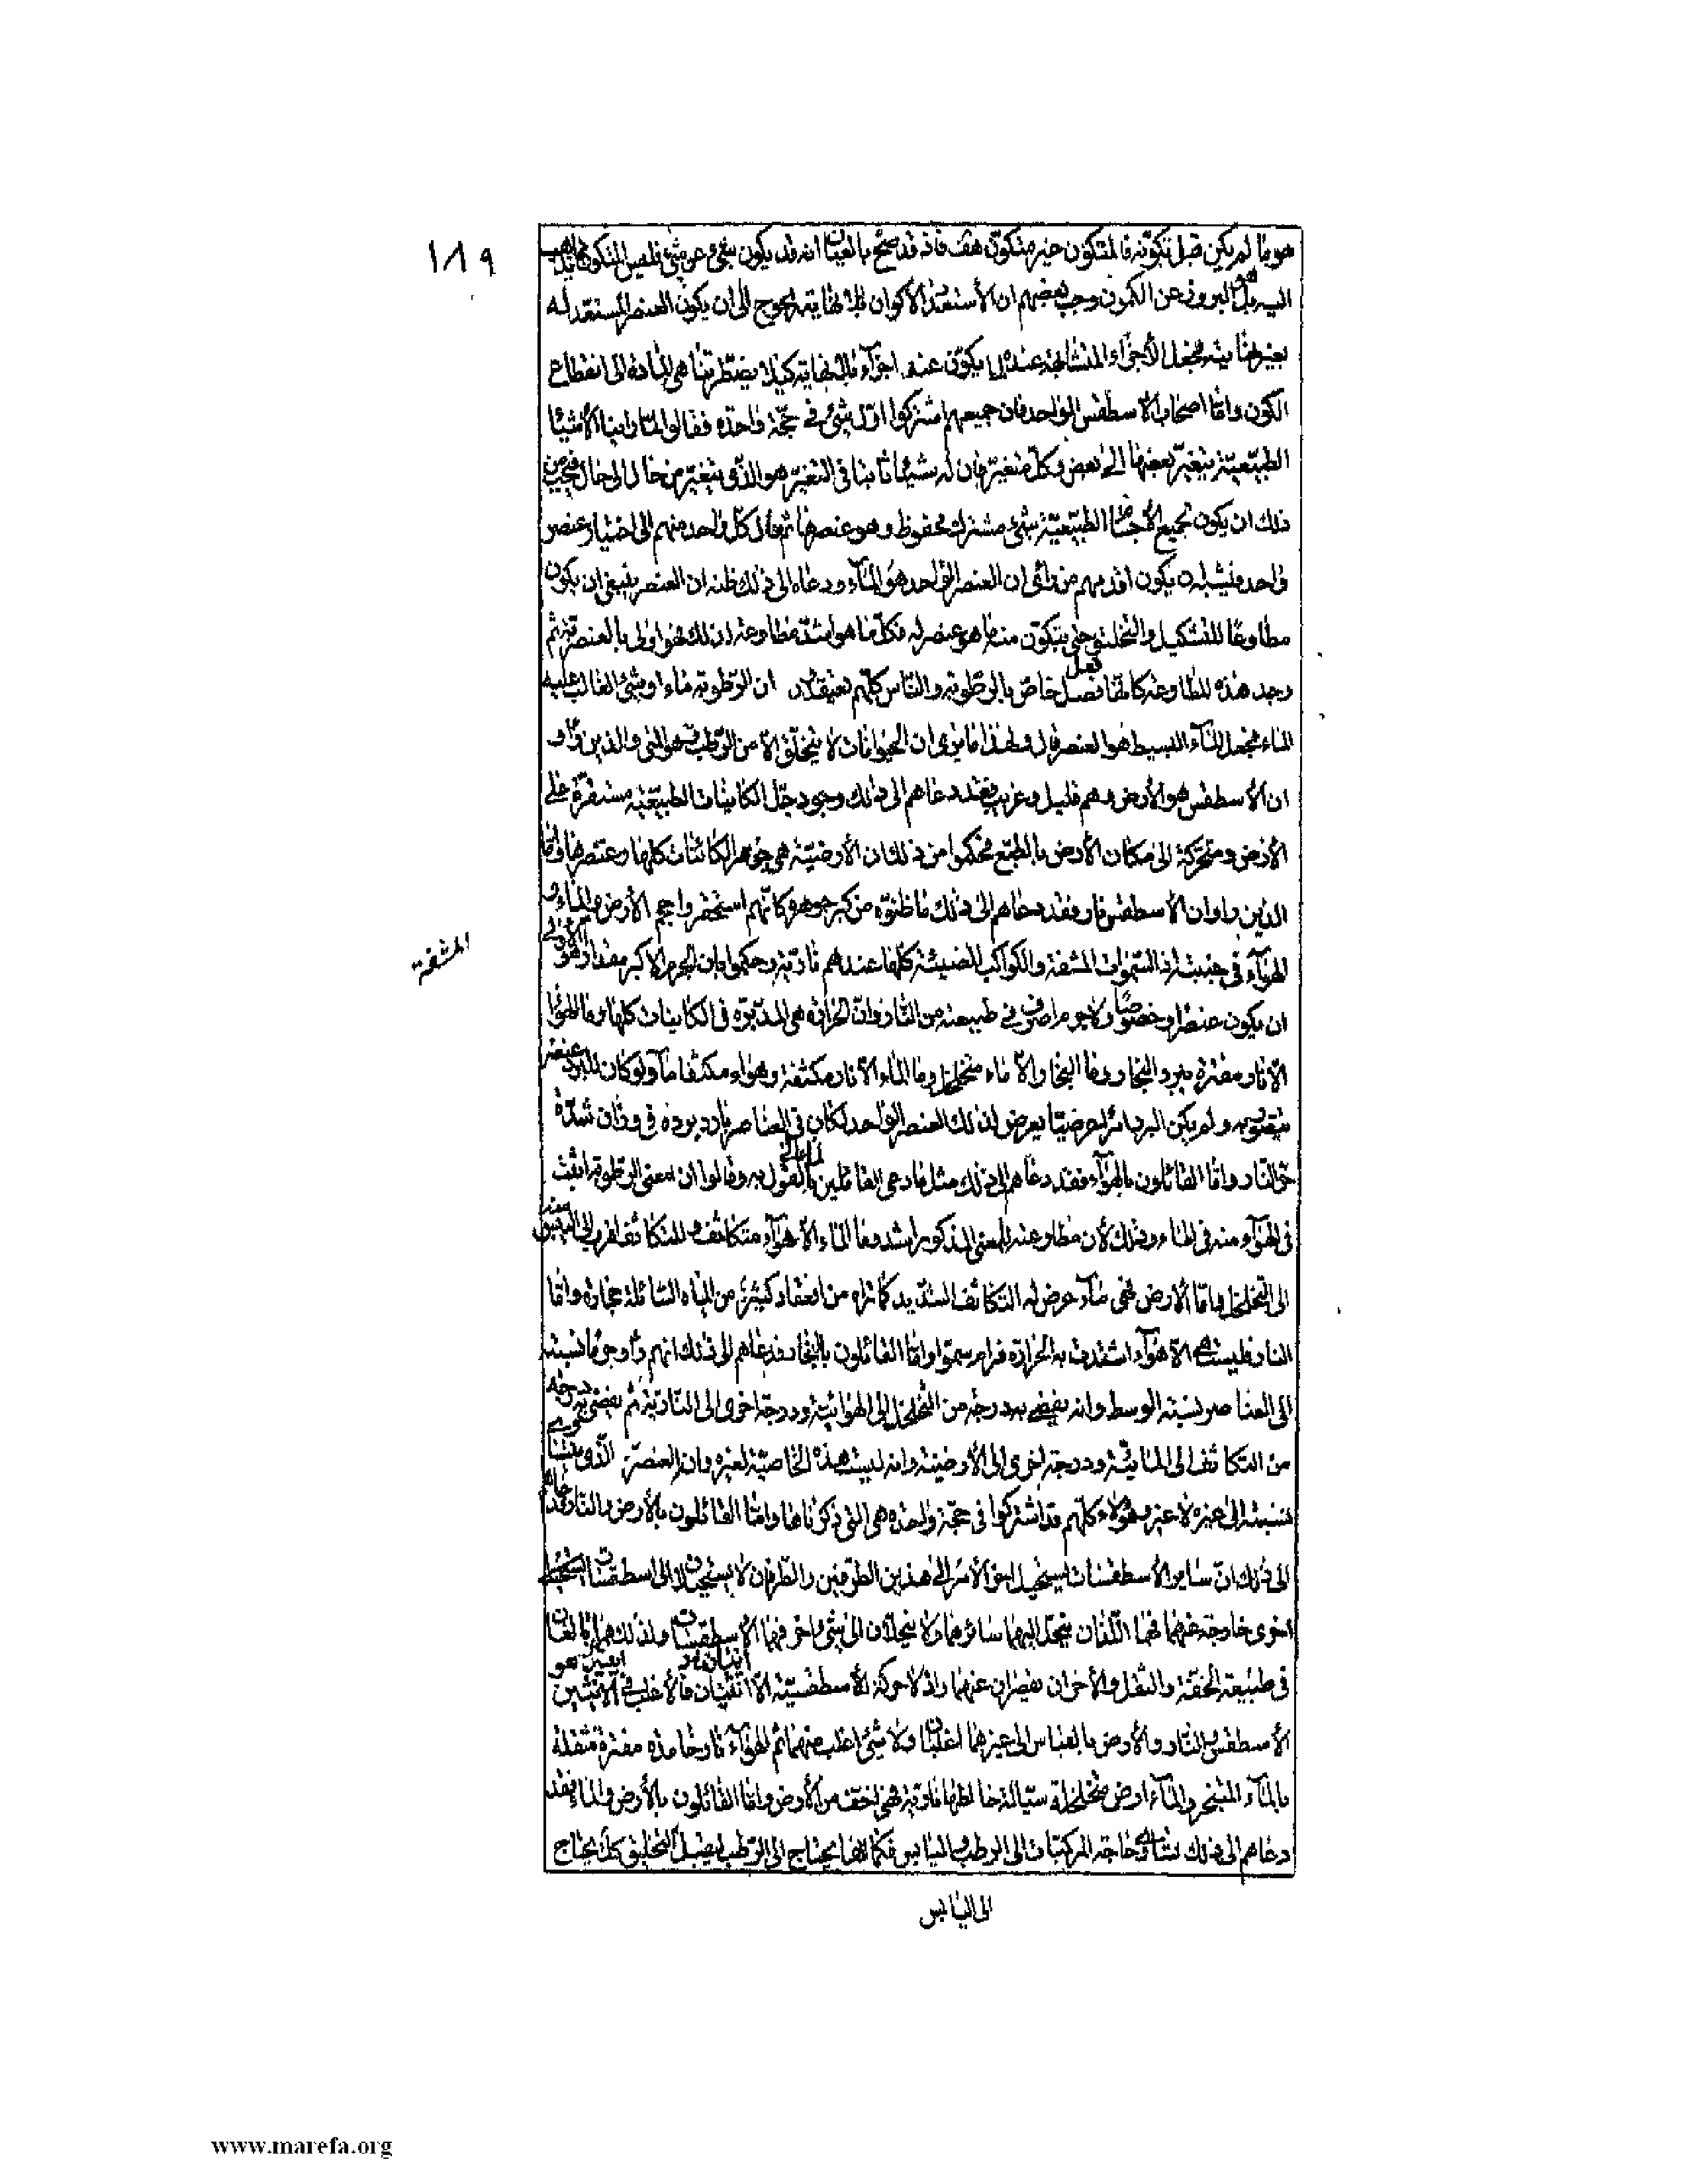 ١٨٩
هو ما لم يكن قبل تكونه فالمتكون غير متكون هف فاذ قد صح بالعيان انه قد يكون شيء عن شيء فليس المتكون
اليه بل البروز عن الكمون وحسب بعضهم ان الأستعداد الأكوان بلا نهاية يحوج الى ان يكون العنصر المستعد له
بغير نهاية فجعل الأجزاء المتشابهة عنده يكون عنه اجزاء بلا نهاية كيلا يضطر تناهى المادة الى انقطاع
الكون واما اصحاب الأسطقس الواحد فان جميعهم اشتركوا اول شيء في حجة واحدة فقالوا لما راينا الأشياء
الطبيعية يتغير بعضها الى بعض وكل متغير فان له شيئا ثابتا في التغير هو الذى يتغير من حال الى حال فيجب من
ذلك ان يكون لجميع الأجسام الطبيعية شيء مشترك محفوظ وهو عنصرها ثم مال كل واحد منهم الى اختيار عنصر
واحد فيشبه ان يكون اقدمهم من راى ان العنصر الواحد هو الماء ودعاه الى ذلك ظنه ان العنصر ينبغى ان يكون
مطاوعا للتشكيل والتخليق حتى يتكون منه ما هو عنصر له فكل ما هو اشد مطاوعة لذلك فهو اولى بالعنصرية ثم
وجد هذه المطاوعة كانها فصل خاص بالرطوبة والناس كلهم يعتقدون ان الرطوبة ماء او شيء الغالب عليه
الماء فجعل الماء البسيط هو العنصر قال ولهذا ما نرى ان الحيوانات لا يتخلق الا من الرطب وهو المنى والذين راو
ان الأسطقس هو الأرض وهم قليل وغريب فقد دعاهم الى ذلك وجود جل الكاينات الطبيعية مستقرة على
الأرض ومتحركة الى مكان الأرض بالطبع فحكموا من ذلك ان الأرضية هى جوهر الكائنات كلها وعنصرها واما
الذين راوا ان الأسطقس نار فقد دعاهم الى ذلك ما ظنوه من كبر جوهره كانهم استحقروا حجم الأرض والماء و
الهواء في جنبته اذ السموات المشفة والكواكب المضيئة كلها عندهم نارية وحكموا بان الجرم الاكبر مقدارا هو الاولى
المشفة
ان يكون عنصرا وخصوصا ولا جرم اصرف في طبيعته من النار وان الحرارة هى المدبرة في الكاينات كلها وما الهواء
الا نار مفترة ببرد البخار وما البخار الا ماء متخلخل وما الماء الا نار مكثفة وهواء مكثف ماء ولو كان للبرد عنصر
يتقوم به ولم يكن البرد امرا عرضيا يعرض لذلك العنصر الواحد لكان في العناصر بارد برده في وزان شدة
حر النار واما القائلون بالهواء فقد دعاهم الى ذلك مثل ما دعى القائلين بالماء الى القول به وقالوا ان معنى الرطوبة اثبت
في الهواء منه في الماء وذلك لأن مطاوعته للمعنى المذكور اشد وما الماء الا هواء متكاثف والمتكاثف اقرب الى اليبس منه
الى التخلخل واما الأرض فهى ماء عرض له التكاثف الشديد كما نراه من انعقاد كثير من المياه السائلة حجارة واما
النار فليست الا هواء اشتدت به الحرارة فرام سموا واما القائلون بالبخار فدعاهم الى ذلك انهم راوا جرما نسبته
الى العناصر نسبة الوسط وانه يفضى به درجة من التخلخل الى الهوائية ودرجة اخرى الى النارية ثم يفضى به درجة
من التكاثف الى المائية ودرجة اخرى الى الأرضية وانه ليست هذه الخاصية لغيره وان العنصر الذى يتساوى
نسبته الى غيره لا غير وهؤلاء كلهم قد اشتركوا في حجة واحدة هى التى ذكرناها واما القائلون بالأرض والنار فدعاهم
الى ذلك ان سائر الأسطقسات يستحيل اخر الأمر الى هذين الطرفين والطرفان لا يستحيلان الى اسطقسات
اخرى خارجة عنهما فهما اللذان ينحل اليهما سائرهما ولا ينحلان الى شيء اخر فهما الأسطقسان ولذلك هما البالغان
في طبيعة الخفة والثقل والأخران يقصران عنهما واذ لا حركة الأسطقسية الا اثنتان فالأغلب في الاثنتين هو
الأسطقس والنار والأرض بالقياس الى غيرهما اغلبان ولا شيء اغلب منهما ثم الهواء نار خامدة مفترة مثقلة
بالماء المتبخر والماء ارض متخلخلة سيالة خالطها نارية فهى اخف من الأرض واما القائلون بالأرض والماء فقد
دعاهم الى ذلك حاجة المركبات الى الرطب واليابس فكما انها يحتاج الى الرطب ليقبل التخليق كذلك يحتاج
الى اليابس
www.marefa.org